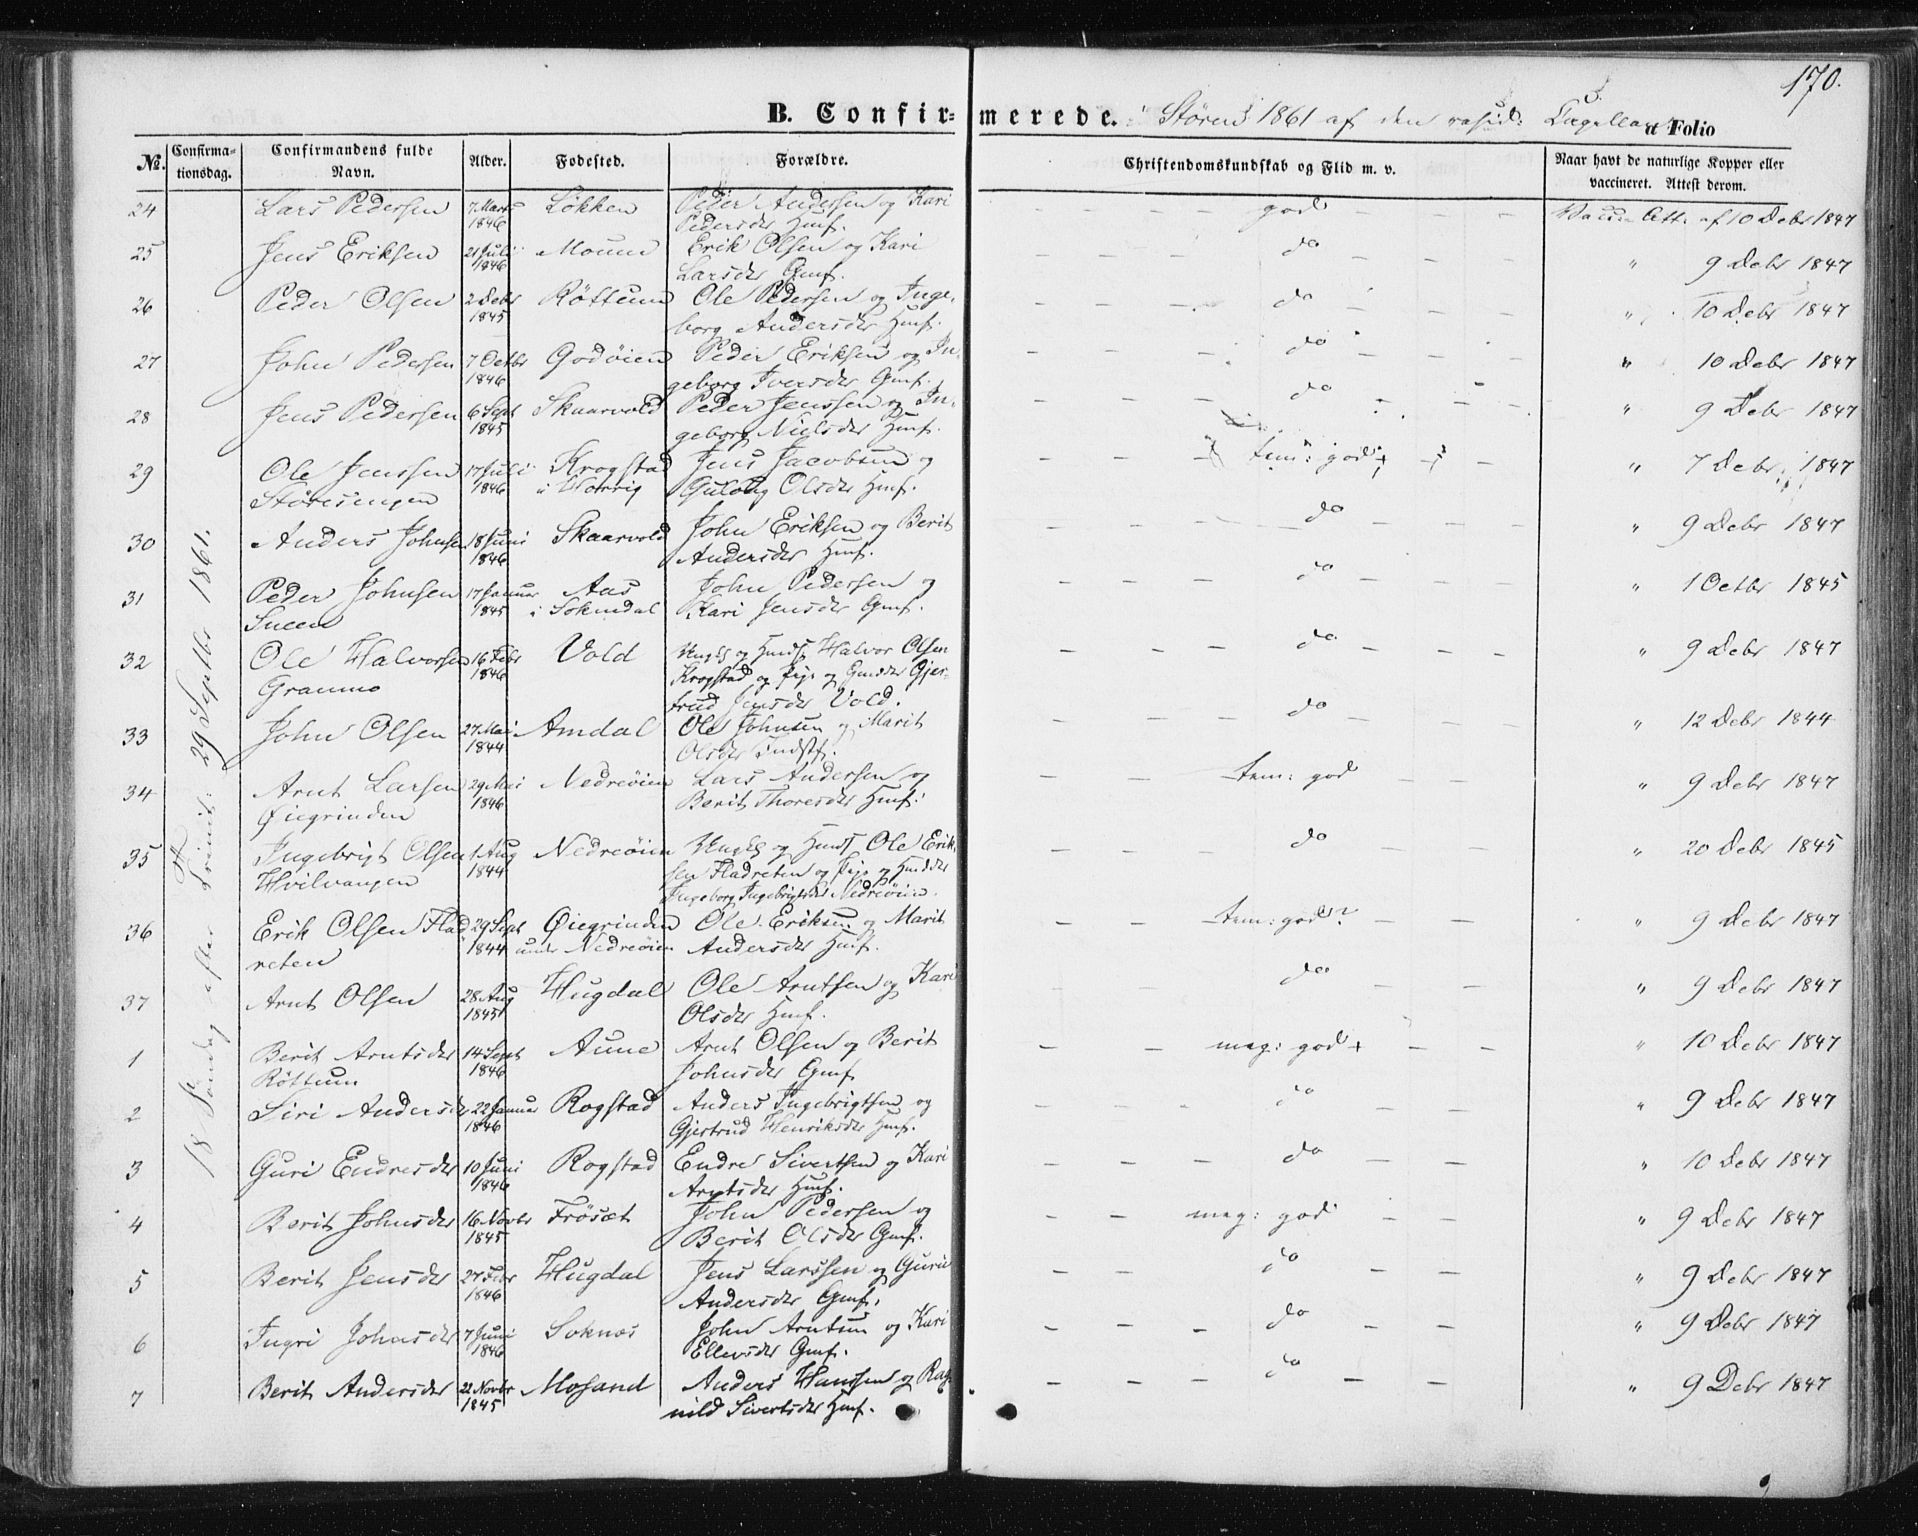 170.
B. Confirmerede. i Støren 1861 af den resid: Capellan a Folio
No. Confirmationsdag. Confirmandens fulde Navn. Alder. Fødested. Forældre. Christendomskundskab og Flid m. v. Naar havt de naturlige Kopper eller vaccineret. Attest derom.
18de Søndag efter Trinit: 29 Septbr 1861.
24 Lars Pedersen 7 Marts 1846 Løkken Peder Andersen og Kari Pedersdr Hmf. god Vacc. Att. af 10 Debr 1847
25 Jens Eriksen 21 Juli 1846 Moum Erik Olsen og Kari Larsdr Gmf. do " 9 Debr 1847
26 Peder Olsen 2 Debr 1845 Røttum Ole Pedersen og Ingeborg Andersdr Hmf. do " 10 Debr 1847
27 John Pedersen 7 Octbr 1846 Godøien Peder Eriksen og Ingeborg Iversdr Gmf. do " 10 Debr 1847
28 Jens Pedersen 6 Sept 1845 Skaarvold Peder Jenssen og Ingeborg Nielsdr Hmf. do " 9 Debr 1847
29 Ole Jenssen Størensengen 17 Juli 1846 Krogstad i Horrig Jens Jacobsen og Gulong Olsdr Hmf. tem: god + " 7 Debr 1847
30 Anders Johnsen 18 Juni 1846 Skaarvold John Eriksen og Berit Andersdr Hmf. do " 9 Debr 1847
31 Peder Johnsen Sneen 17 Januar 1845 Aas i Soknedal John Pedersen og Kari Jensdr Gmf. do " 1 Octbr 1845
32 Ole Halvorsen Grammo 16 Febr 1846 Vold Ungk og Hmds Halvor Olsen Krogstad og Pige og Gmdr Gjertrud Jensdr Vold. do " 9 Debr 1847
33 John Olsen 27 Mai 1844 Amdal Ole Johnsen og Marit Olsdr Indstf. do " 12 Debr 1844
34 Arnt Larsen Øiegrinden 29 Mai 1846 Nedreøien Lars Andersen og Berit Thoresdr Hmf. tem: god " 9 Debr 1847
35 Ingebrigt Olsen Hvilvangen 1 Aug 1844 Nedreøien Ungk og Hmds Ole Eriksen Fladreten og Pige og Hmdr Ingeborg Ingebrigtsdr Nedreøien. do " 20 Debr 1845
36 Erik Olsen Fladreten 29 Sept 1844 Øiegrinden under Nedreøien Ole Eriksen og Marit Andersdr Hmf. tem: god? " 9 Debr 1847
37 Arnt Olsen 28 Aug 1845 Hugdal Ole Arntsen og Kari Olsdr Hmf. do " 9 Debr 1847
1 Berit Arntsdr Røttum 14 Sept 1846 Aune Arnt Olsen og Berit Johnsdr Gmf. meg: god + " 10 Debr 1847
2 Siri Andersdr 22 Januar 1846 Rogstad Anders Ingebrigtsen og Gjertrud Henriksdr Hmf. do " 9 Debr 1847
3 Guri Endresdr 10 Juni 1846 Rogstad Endre Sivertsen og Kari Arntsdr Hmf. do " 10 Debr 1847
4 Berit Johnsdr 16 Novbr 1845 Frøsæt John Pedersen og Berit Olsdr Gmf. meg: god " 9 Debr 1847
5 Berit Jensdr 27 Febr 1846 Hugdal Jens Larssen og Guru Andersdr Gmf. do " 9 Debr 1847
6 Ingri Johnsdr 7 Juni 1846 Soknæs John Arntsen og Kari Ellevsdr Gmf. do " 9 Debr 1847
7 Berit Andersdr 22 Novbr 1845 Mosand Anders Hanssen og Ragnild Sivertsdr Hmf. do " 9 Debr 1847